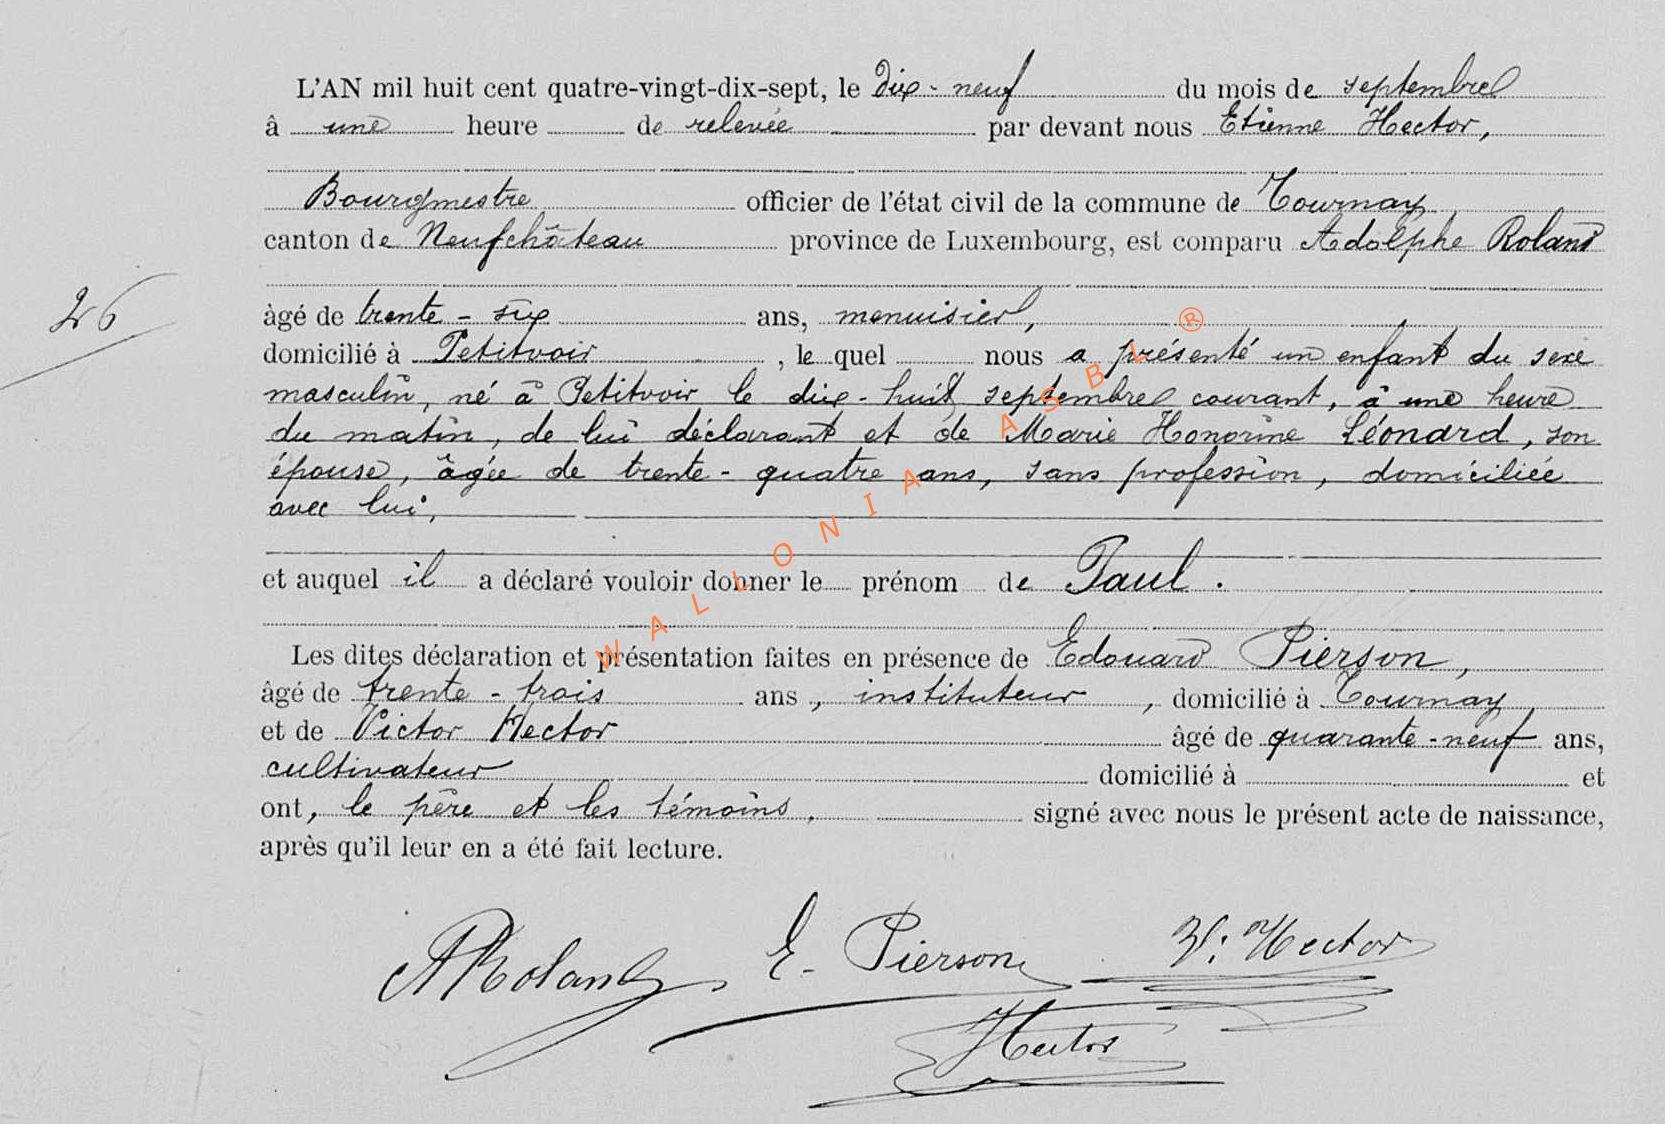 L'AN mil huit cent quatre-vingt-dix-sept, le dix-neuf du mois de septembre
à une heure de relevée par devant nous Etienne Hector,
Bourgmestre officier de l'état civil de la commune de Tournay
canton de Neufchâteau province de Luxembourg, est comparu Adolphe Roland
26
âgé de trente-six ans, menuisier,
domicilié à Petitvoir , le quel nous a présenté un enfant du sexe
masculin, né à Petitvoir le dix-huit septembre courant, à une heure
du matin, de lui déclarant et de Marie Honorine Léonard, son
épouse, âgée de trente-quatre ans, sans profession, domiciliée
avec lui,
et auquel il a déclaré vouloir donner le prénom de Paul.
Les dites déclaration et présentation faites en présence de Edouard Pierson,
âgé de trente-trois ans, instituteur, domicilié à Tournay,
et de Victor Hector âgé de quarante-neuf ans,
cultivateur domicilié à et
ont, le père et les témoins, signé avec nous le présent acte de naissance,
après qu'il leur en a été fait lecture.
ARoland E. Pierson V. Hector
Hector
WALLONIA ASBL ®